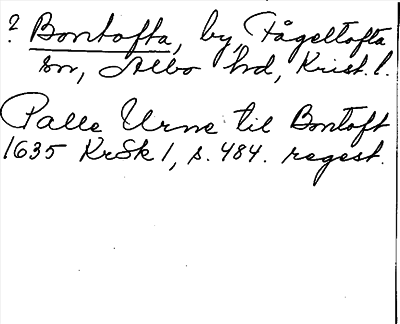 ? Bontofta, by, Fågeltofta
sn, Albo hd, Krist. l.
Palle Urne til Bontoft
1635 KrSk 1, s. 484. regest.